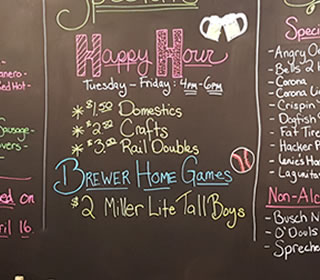 Specials
Happy Hour
Tuesday - Friday: 4pm-6pm
* $1.50 Domestics
* $2.50 Crafts
* $3.00 Rail Doubles
Brewer Home Games
$2 Miller Lite Tall Boys
Hot-
Sausage-
April
16
on
Angry
Bell's 2
Corona
Corona
Crispin
Dogfish
Fat Tire
Hacker P
Lagunita
Non-Alc
Busch N
O'Douls
Spreche